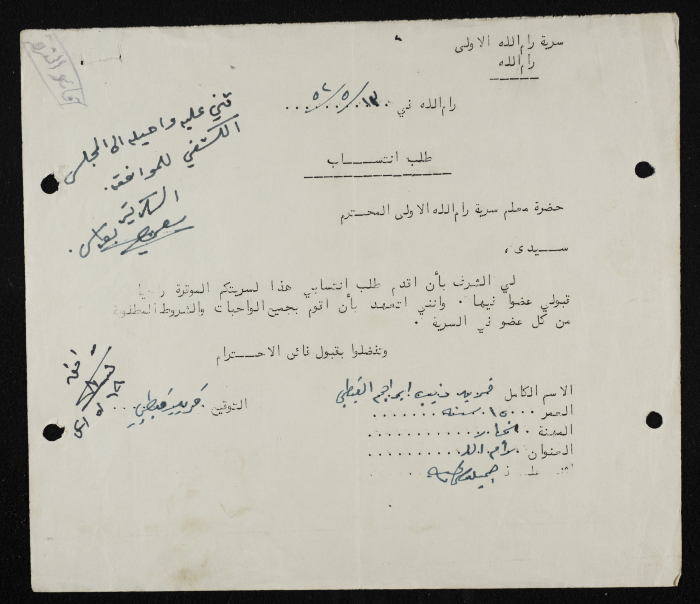 سرية رام الله الاولى
رام الله
رام الله في ١٣/٥/٥٢
طلب انتســـاب
حضرة معلم سرية رام الله الاولى المحـترم
ســيدي ،
لي الشرف بأن اقدم طلب انتسابي هذا لسريتكم الموقرة راجيا
قبولي عضوا فيها . وانني اتعهد بأن اقوم بجميع الواجبات والشروط المطلوبة
من كل عضو في السرية .
وتفضلوا بقبول فائق الاحـترام
الاسم الكامل فريد ابراهيم القبطي
العمر ١٥ سنة
المهنة
العنوان رام الله
التوقيع فريد قبطي
عليه واحيله الى المجلس
الكشفي للموافقة .
السكرتير